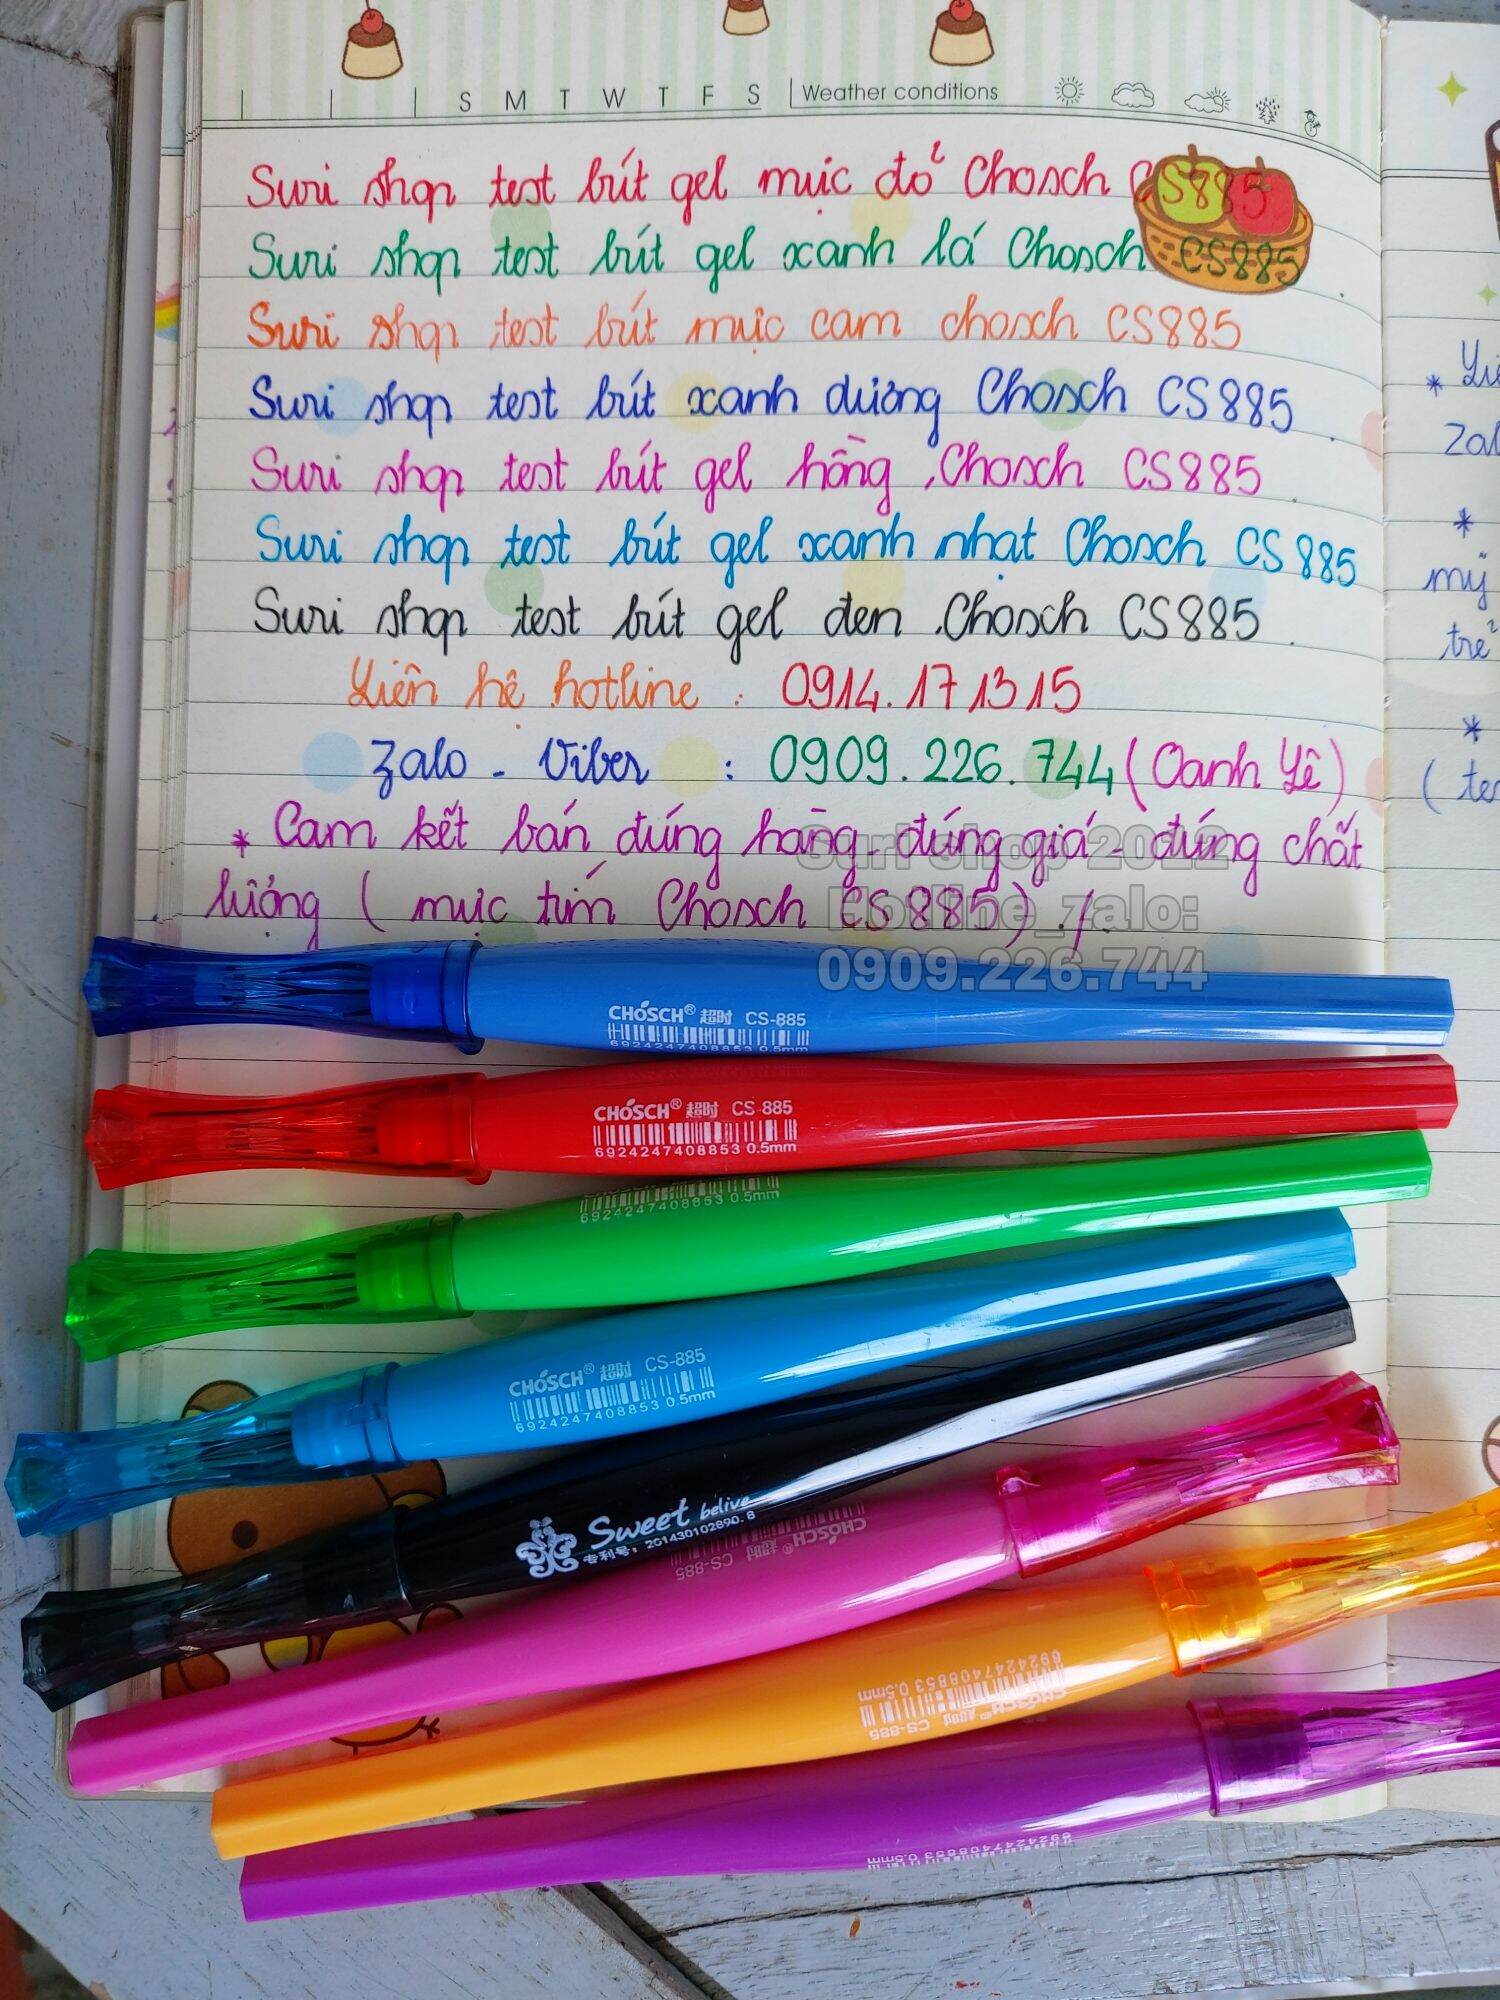 S M T W T F S Weather conditions
Suri shop test bút gel mực đỏ Chosch CS885
Suri shop test bút gel xanh lá Chosch CS885
Suri shop test bút mực cam chosch CS885
Suri shop test bút xanh dương Chosch CS885
Suri shop test bút gel hồng Chosch CS885
Suri shop test bút gel xanh nhạt Chosch CS885
Suri shop test bút gel đen Chosch CS885
Liên hệ hotline : 0914.171315
Zalo - Viber : 0909.226.744 (Oanh Lê)
* Cam kết bán đúng hàng - đúng giá - đúng chất
lượng ( mực tím Chosch CS885) ./.
Suri shop 2012
Hotline_zalo:
0909.226.744
* Liê
Zal
*
mỹ
trẻ
*
( te
CHOSCH® 超时 CS-885
6924247408853 0.5mm
CHOSCH® 超时 CS-885
6924247408853 0.5mm
6924247408853 0.5mm
CHOSCH® 超时 CS-885
6924247408853 0.5mm
Sweet belive
专利号: 201430102890.8
CHOSCH® 超时 CS-885
CHOSCH® 超时 CS-885
6924247408853 0.5mm
6924247408853 0.5mm